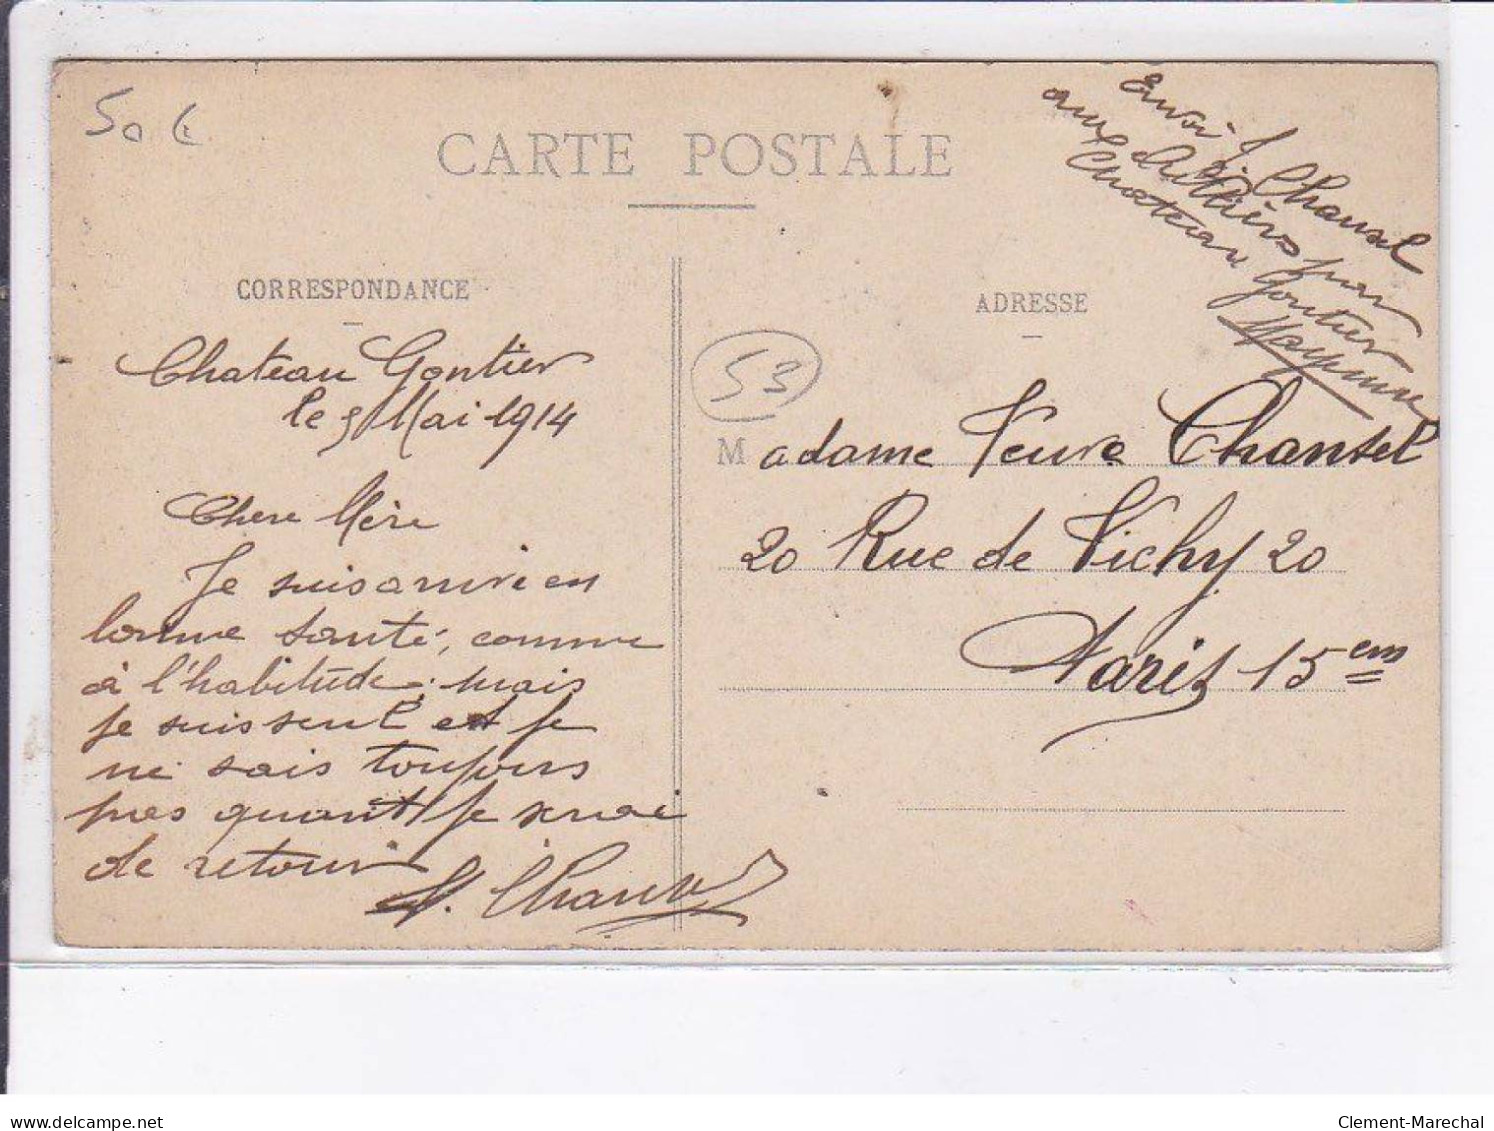 50 €
CARTE POSTALE
Envoi J. Chansel
aux par
Chateau Gontier
Mayenne
CORRESPONDANCE
Chateau Gontier
le 5 Mai 1914
Chere Mère
Je suis arrivé en
bonne santé, comme
à l'habitude, mais
je suis seul et je
ne sais toujours
pas quant je serai
de retour
J. Chansel
ADRESSE
53
Madame Veuve Chansel
20 Rue de Vichy 20
Paris 15em
delcampe.net
Clement-Marechal